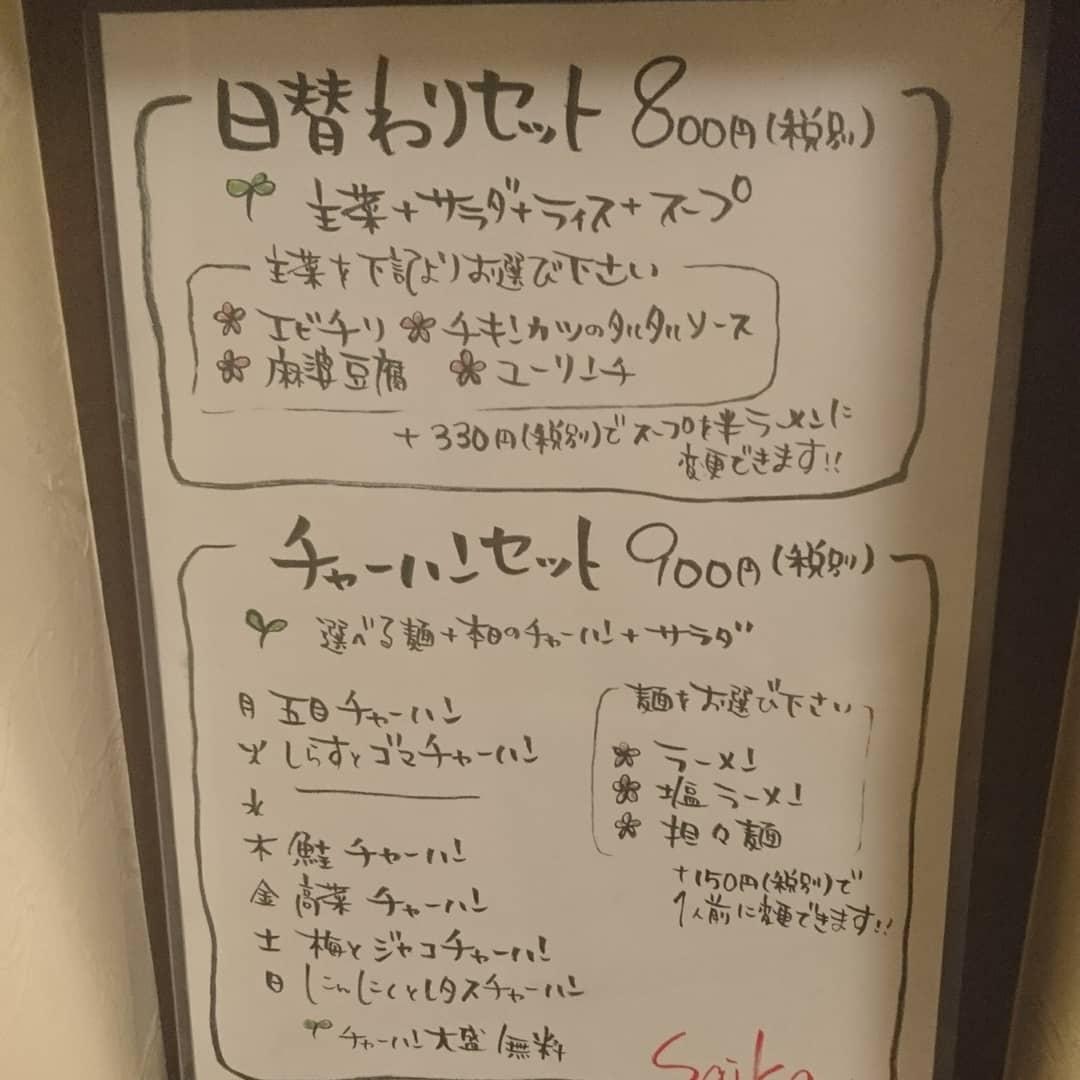 日替わりセット 800円(税別)
主菜+サラダ+ライス+スープ
主菜を下記よりお選び下さい
エビチリ チキンカツのタルタルソース
麻婆豆腐 ユーリンチ
+330円(税別)でスープを半ラーメンに
変更できます!!
チャーハンセット 900円(税別)
選べる麺+本日のチャーハン+サラダ
月 五目チャーハン
火 しらすとゴマチャーハン
水
木 鮭チャーハン
金 高菜チャーハン
土 梅とジャコチャーハン
日 にんにくとレタスチャーハン
チャーハン大盛無料
麺をお選び下さい
ラーメン
塩ラーメン
担々麺
+150円(税別)で
1人前に変更できます!!
Saika